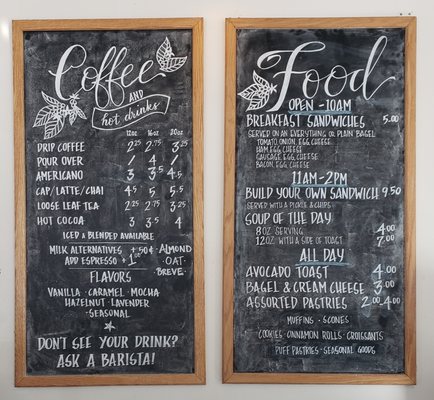 Coffee
AND
hot drinks
12oz 16oz 20oz
DRIP COFFEE 2.25 2.75 3.25
POUR OVER / 4 /
AMERICANO 3 3.5 4.5
CAP/LATTE/CHAI 4.5 5 5.5
LOOSE LEAF TEA 2.25 2.75 3.25
HOT COCOA 3 3.5 4
ICED & BLENDED AVAILABLE
MILK ALTERNATIVES +.50¢ · ALMOND
ADD ESPRESSO + 1.00 · OAT ·
BREVE ·
FLAVORS
VANILLA · CARAMEL · MOCHA
HAZELNUT · LAVENDER
· SEASONAL
DON'T SEE YOUR DRINK?
ASK A BARISTA!
Food
OPEN - 10AM
BREAKFAST SANDWICHES 5.00
SERVED ON AN EVERYTHING OR PLAIN BAGEL
TOMATO, ONION, EGG, CHEESE
HAM, EGG, CHEESE
SAUSAGE, EGG, CHEESE
BACON, EGG, CHEESE
11AM-2PM
BUILD YOUR OWN SANDWICH 9.50
SERVED WITH A PICKLE & CHIPS
SOUP OF THE DAY
8OZ SERVING 4.00
12OZ WITH A SIDE OF TOAST 7.00
ALL DAY
AVOCADO TOAST 4.00
BAGEL & CREAM CHEESE 3.00
ASSORTED PASTRIES 2.00-4.00
MUFFINS · SCONES
COOKIES · CINNAMON ROLLS · CROISSANTS
PUFF PASTRIES · SEASONAL GOODS